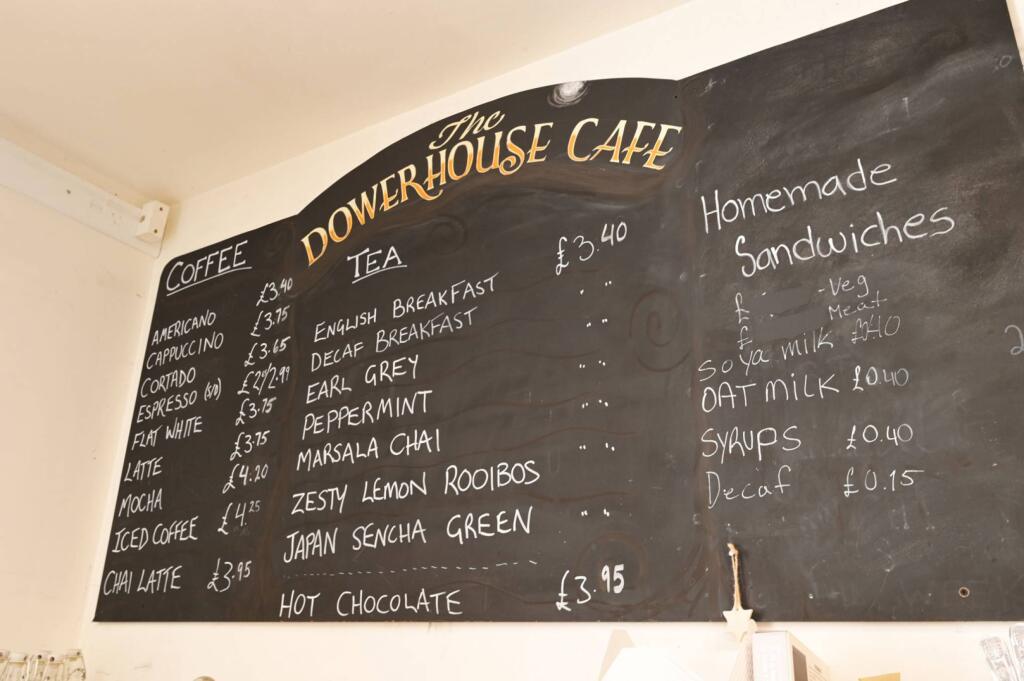 The
DOWERHOUSE CAFE
COFFEE
AMERICANO £3.40
CAPPUCCINO £3.75
CORTADO £3.65
ESPRESSO (S/D) 2.99
FLAT WHITE £3.75
LATTE £3.75
MOCHA £4.20
ICED COFFEE £4.25
CHAI LATTE £3.95
TEA
ENGLISH BREAKFAST £3.40
DECAF BREAKFAST " "
EARL GREY " "
PEPPERMINT " "
MARSALA CHAI " "
ZESTY LEMON ROOIBOS " "
JAPAN SENCHA GREEN " "
HOT CHOCOLATE £3.95
Homemade
Sandwiches
£ -Veg
£ Meat
Soya milk
OAT MILK £0.40
SYRUPS £0.40
Decaf £0.15